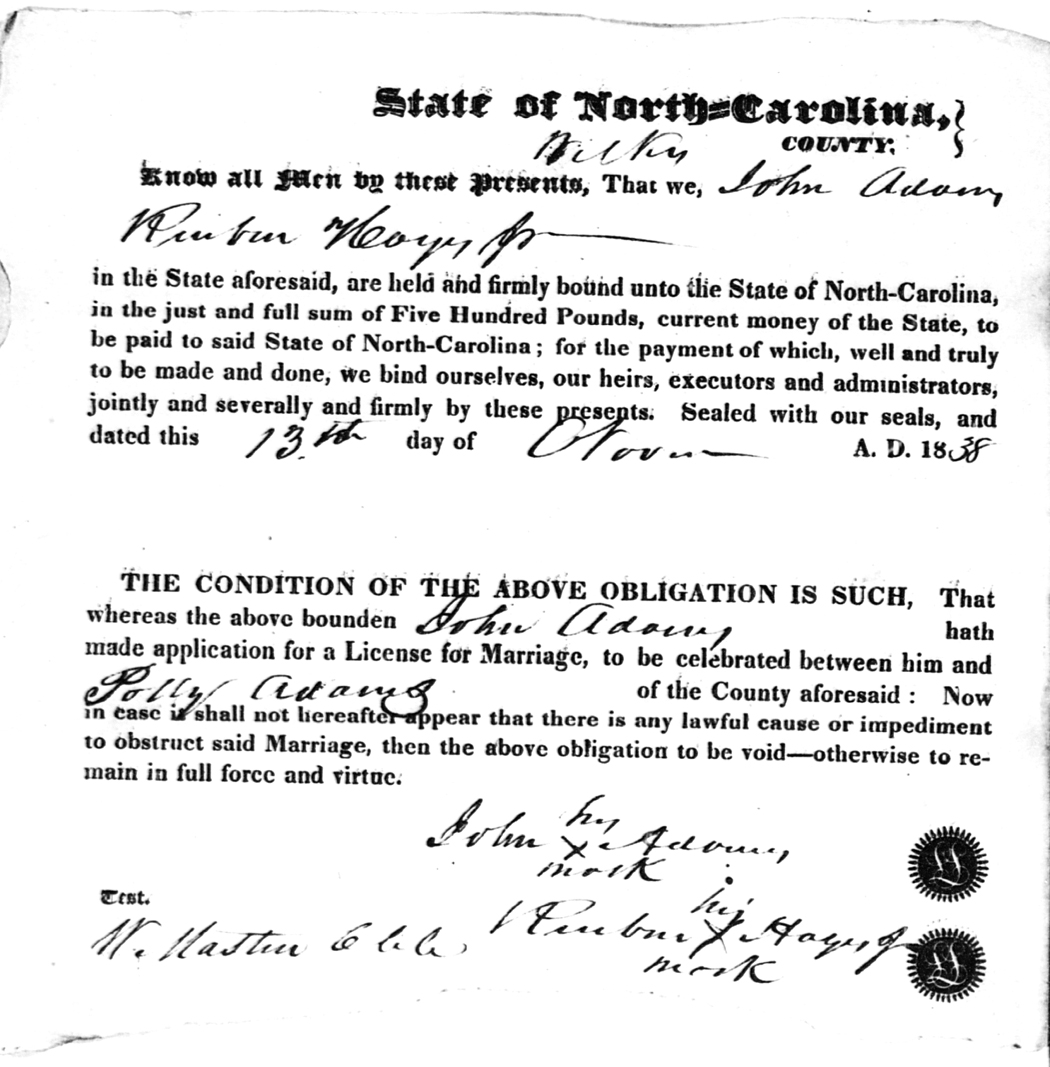 State of North-Carolina,
Wilkes COUNTY.
Know all Men by these Presents, That we, John Adams
Reuben Hayes Jr
in the State aforesaid, are held and firmly bound unto the State of North-Carolina,
in the just and full sum of Five Hundred Pounds, current money of the State, to
be paid to said State of North-Carolina; for the payment of which, well and truly
to be made and done, we bind ourselves, our heirs, executors and administrators,
jointly and severally and firmly by these presents. Sealed with our seals, and
dated this 13th day of A. D. 1838
THE CONDITION OF THE ABOVE OBLIGATION IS SUCH, That
whereas the above bounden John Adams hath
made application for a License for Marriage, to be celebrated between him and
Polly Adams of the County aforesaid: Now
in case it shall not hereafter appear that there is any lawful cause or impediment
to obstruct said Marriage, then the above obligation to be void—otherwise to re-
main in full force and virtue.
his
John X Adams
mark
Test.
his
W. Mastin Reuben X Hayes Jr
mark